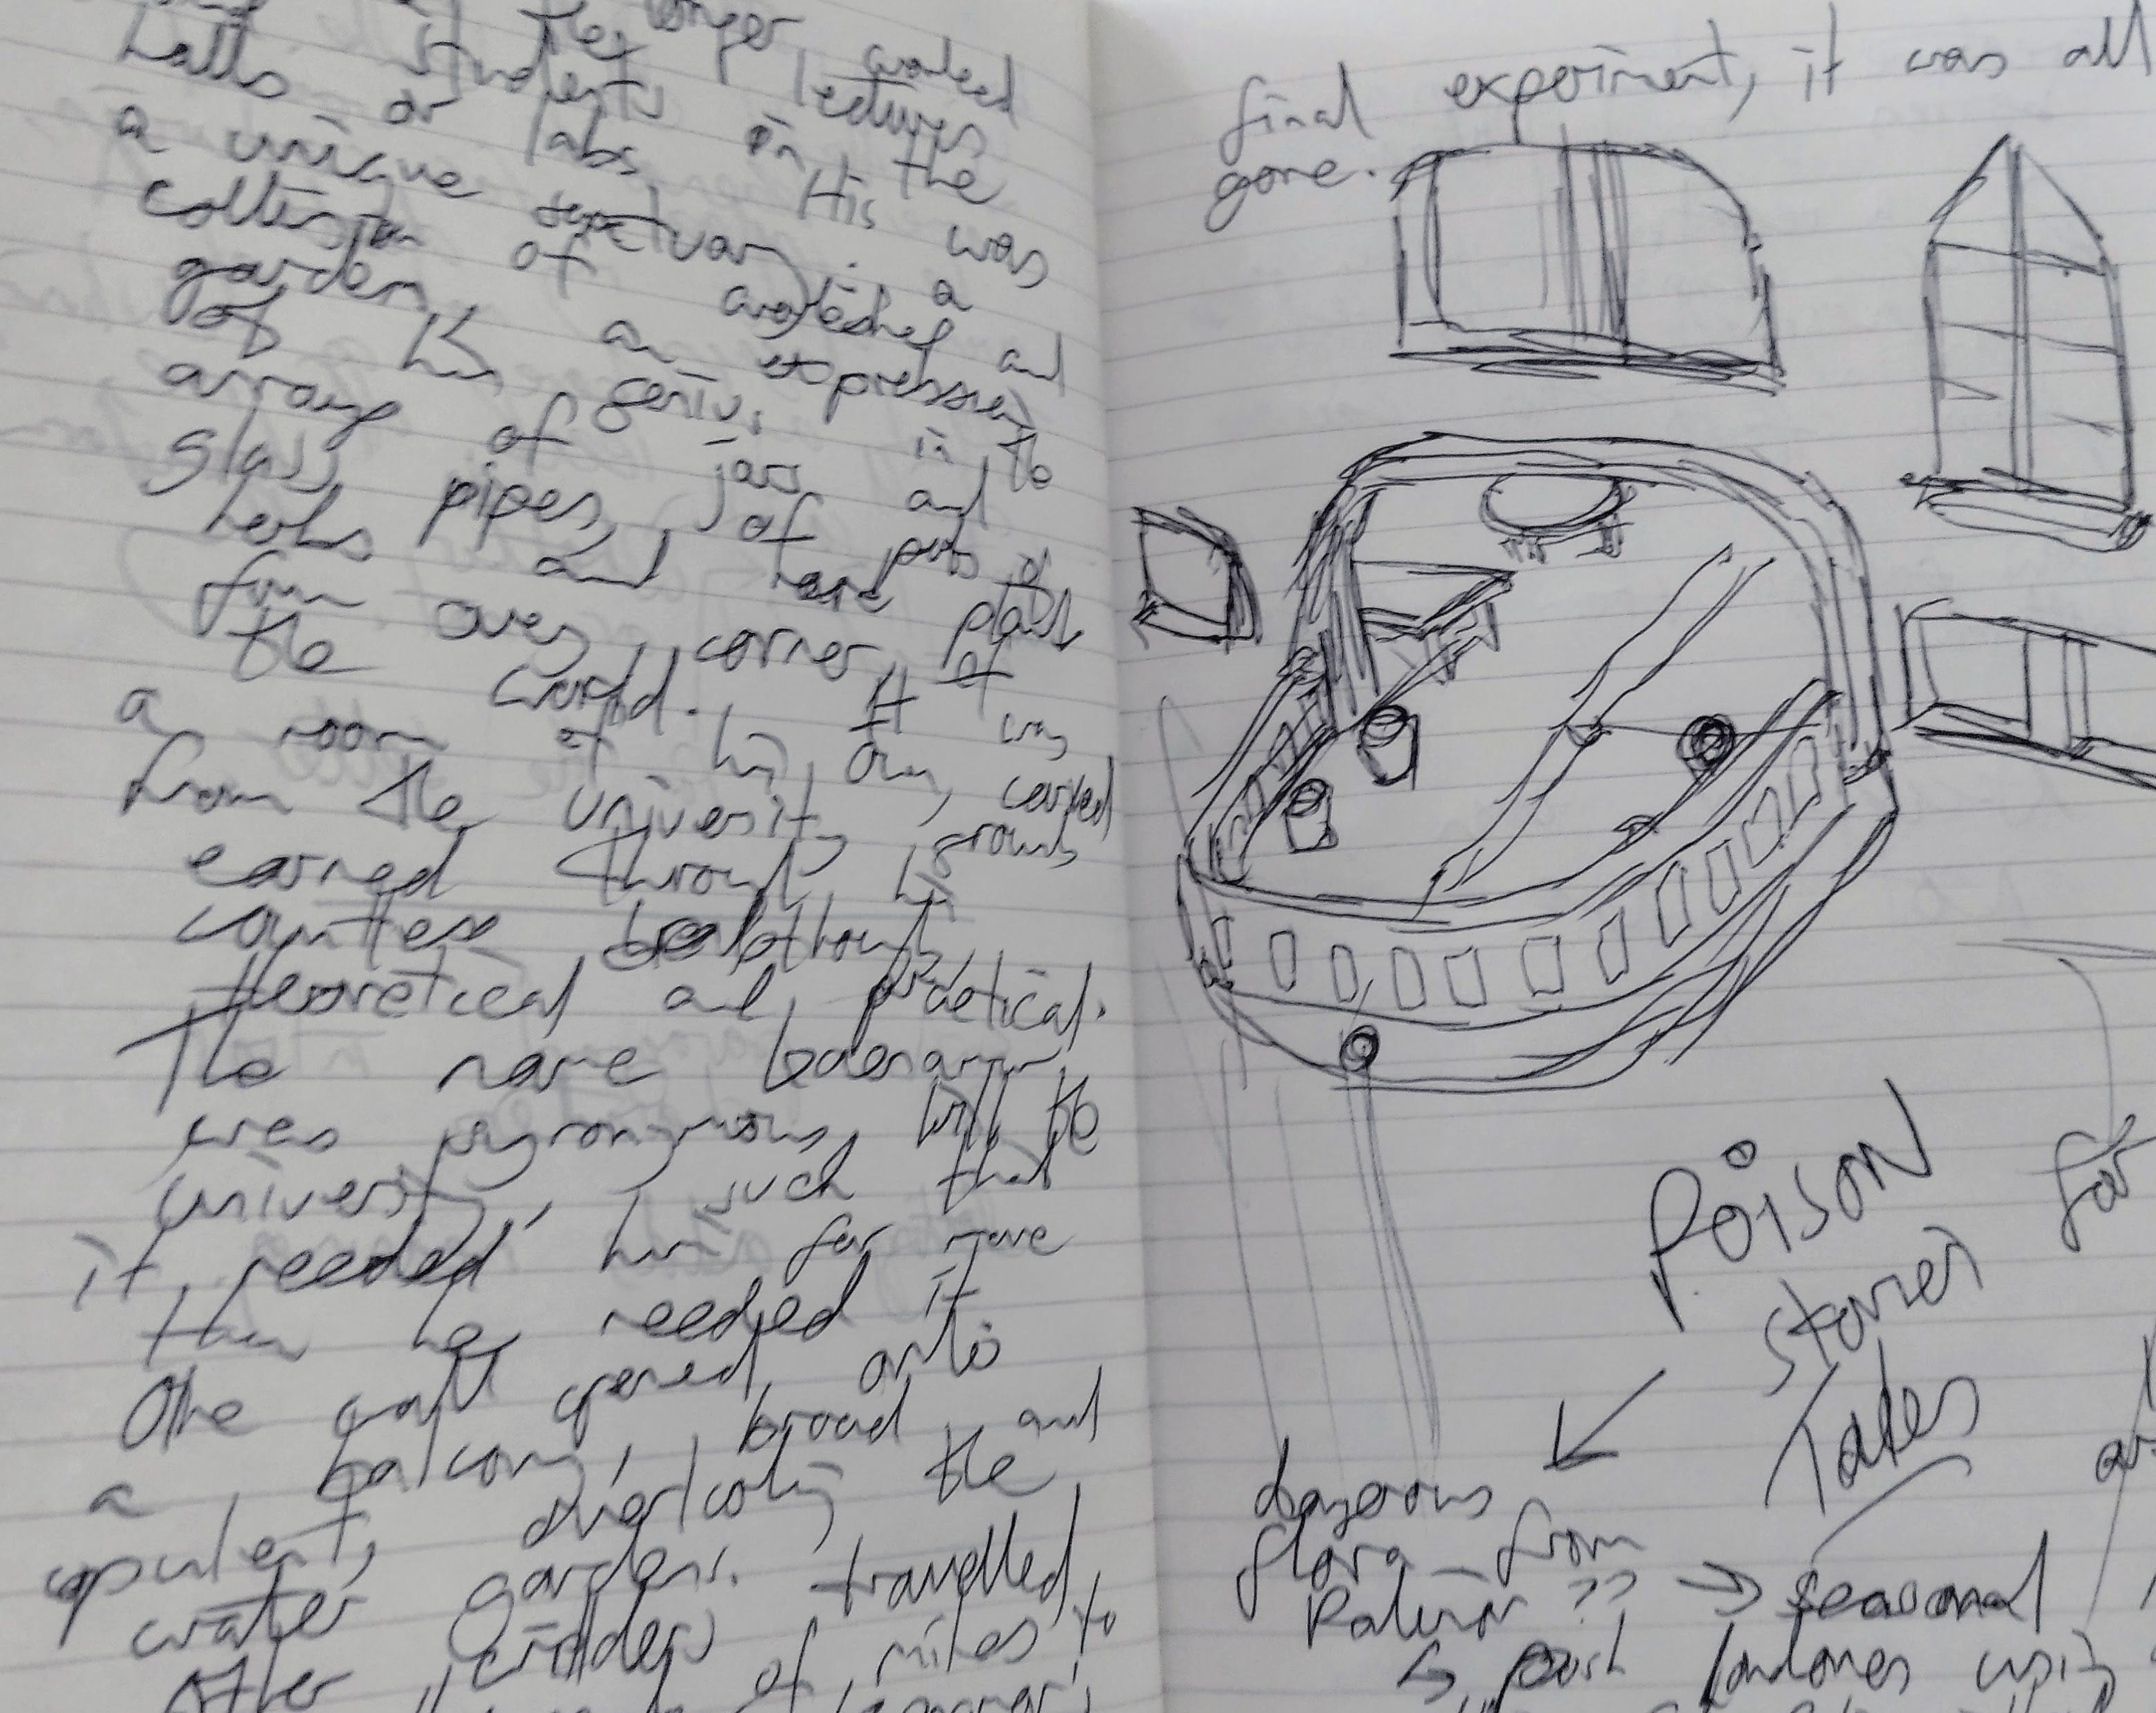 longer worked
students lectures
halls or labs in the
a unique sanctuary. His was
collision of a
garden, workshop and
of his an expression
genius in the
array of jars and
glass pipes, of pots of
herbs and rare plants
from every corner of
the world. It was
a room of his own, carved
from the university grounds
earned through his
countless breakthroughs,
theoretical and practical.
The name
was synonymous with the
university, such that
it needed him far more
than he needed it
One wall opened onto
a balcony, broad and
opulent, overlooking the
water gardens.
Other travelled
of miles to
final experiment, it was all
gone.
POISON
for
Stories
Tales
dangerous
flora from
?? → seasonal
↳ Londoners using